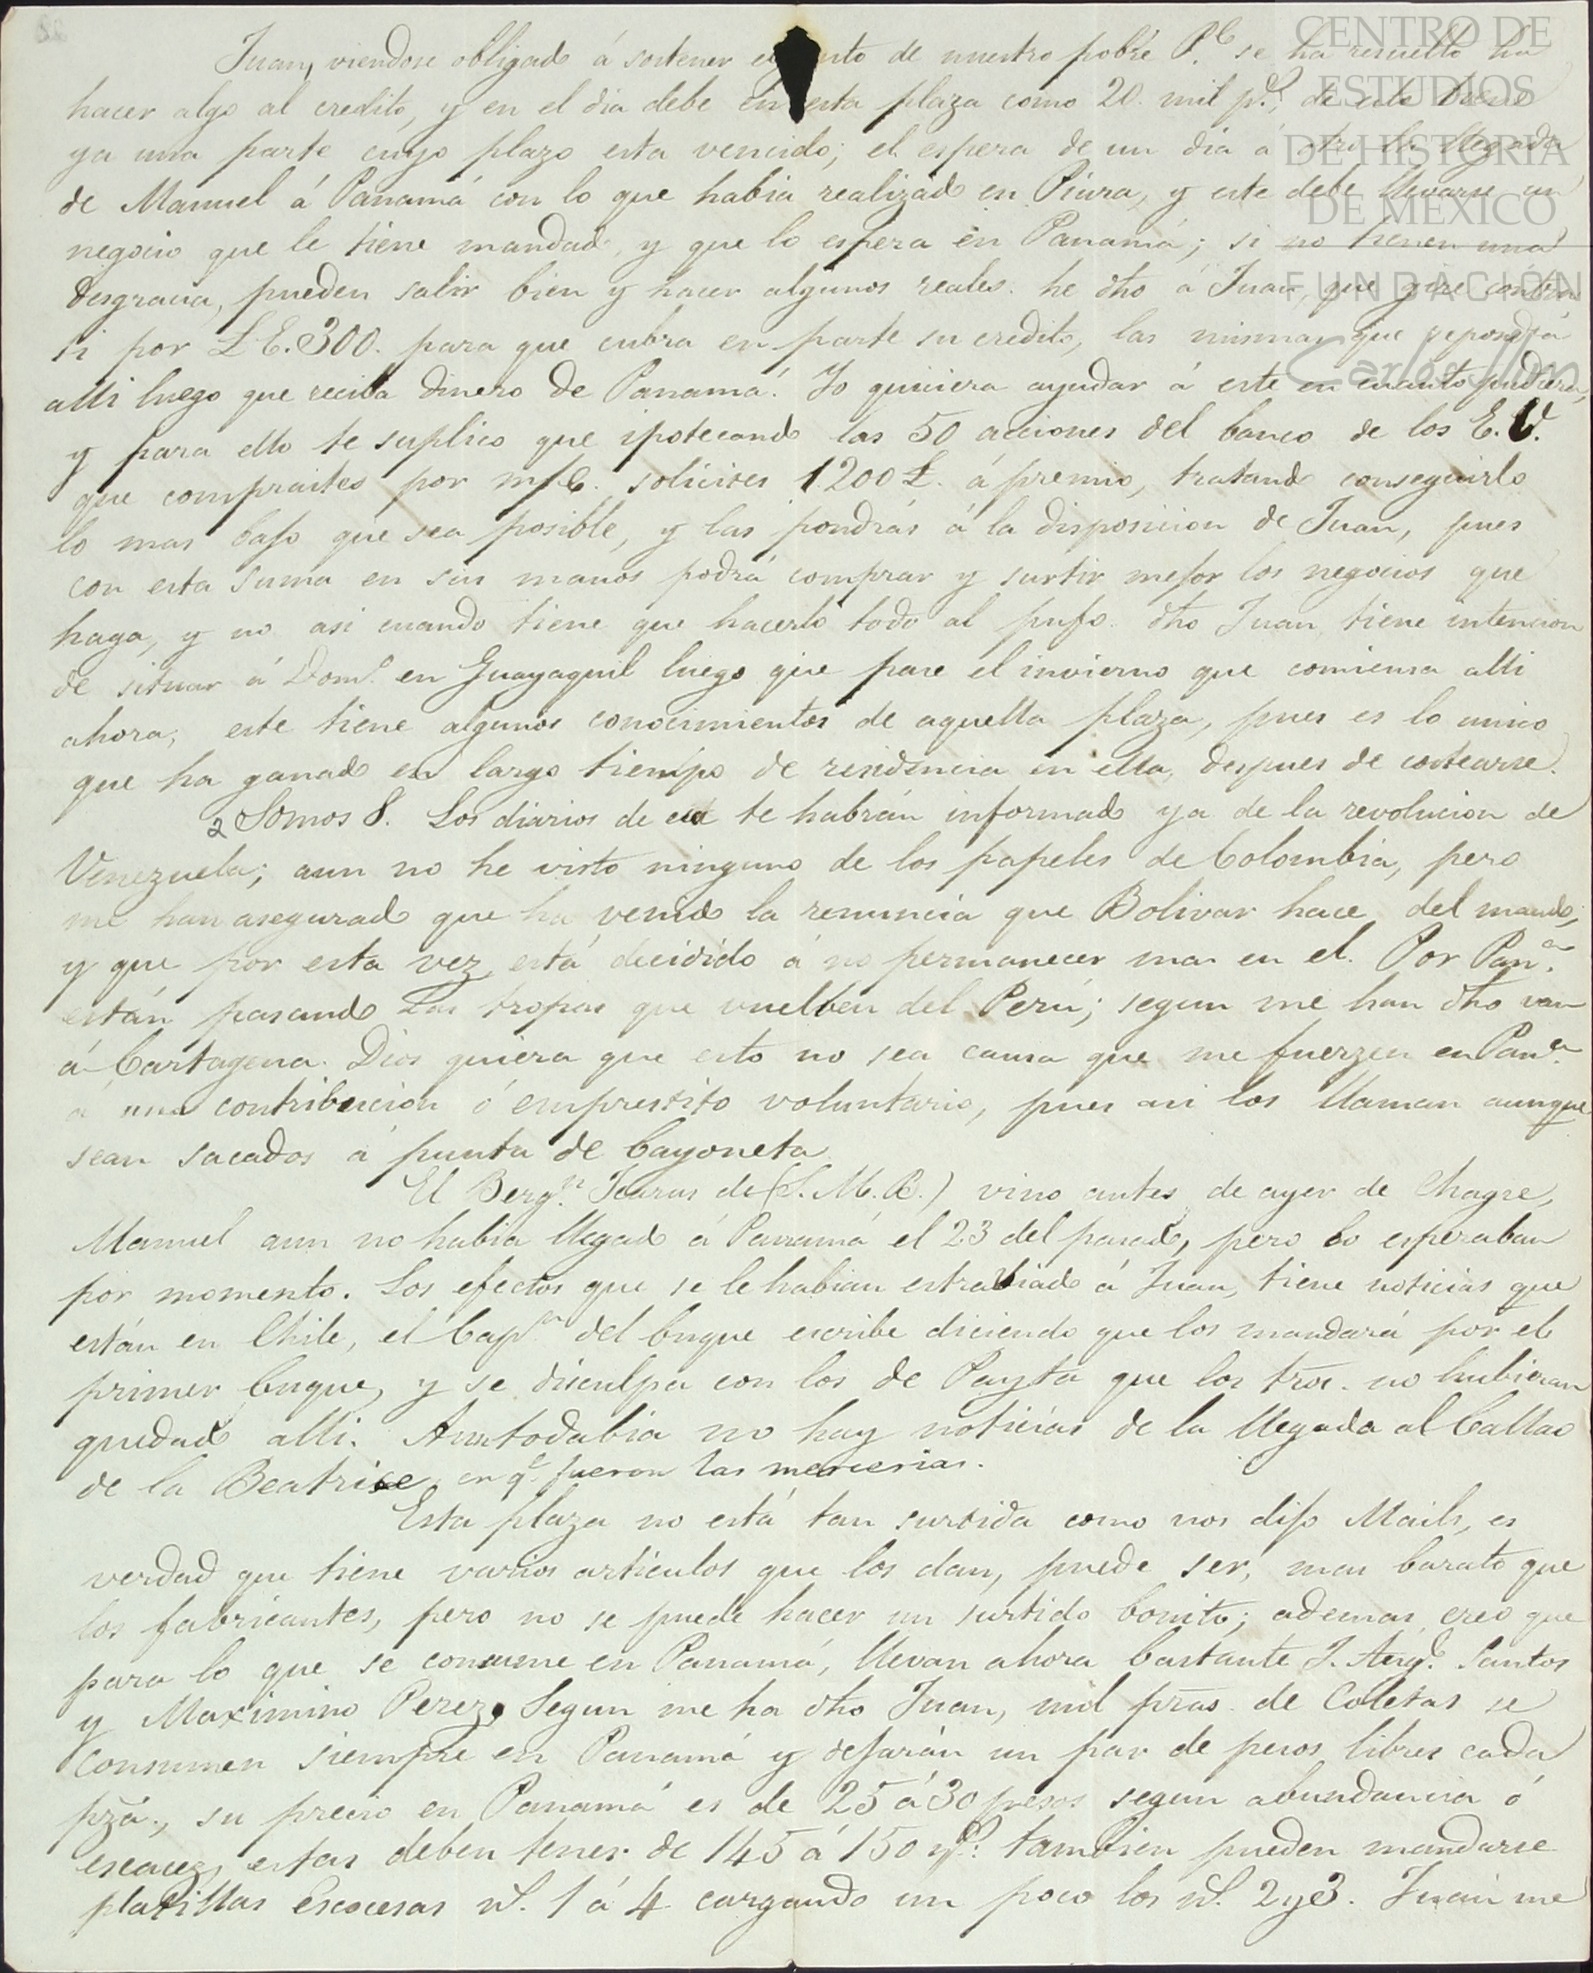 Juan, viendose obligado á sostener el de nuestro pobre P.e se ha resuelto ha
hacer algo al credito, y en el dia debe en esta plaza como 20. mil p.s de este
ya una parte cuyo plazo esta vencido; el espera de un dia á otro la llegada
de Manuel á Panamá con lo que habia realizado en Piura, y este debe llevarse un
negocio que le tiene mandado, y que lo espera en Panamá; si no tienen una
desgracia, pueden salir bien y hacer algunos reales. he dho á Juan, que gire contra
ti por £E.300. para que cubra en parte su credito, las mismas que repondrá
alli luego que reciba dinero de Panamá. Yo quiciera ayudar á este en cuanto pudiera,
y para ello te suplico que ipotecando las 50 acciones del banco de los E.U.
que compraites por m/c. solicites 1200£. á premio, tratando conseguirlo
lo mas bajo que sea posible, y las pondrás á la disposicion de Juan, pues
con esta suma en sus manos podrá comprar y surtir mejor los negocios que
haga, y no asi cuando tiene que hacerlo todo al pufo. dho Juan, tiene intencion
de situar á Dom.o en Guayaquil luego que pase el invierno que comiensa alli
ahora, este tiene algunos conocimientos de aquella plaza, pues es lo unico
que ha ganado en largo tiempo de residencia en ella, despues de costearse.
2 Somos 8. Los diarios de esa te habrán informado ya de la revolucion de
Venezuela; aun no he visto ninguno de los papeles de Colombia, pero
me han asegurado que ha venido la renuncia que Bolivar hace del mando;
y que por esta vez está decidido á no permanecer mas en el. Por Pan.a
están pasando las tropas que vuelben del Perú; segun me han dho van
á Cartagena. Dios quiera que esto no sea causa que me fuerzen en Pan.a
á una contribucion ó emprestito voluntario, pues asi los llaman aunque
sean sacados á punta de bayoneta
El Berg.n Icarus de (S.M.B.) vino antes de ayer de Chagre,
Manuel aun no habia llegado á Panamá el 23 del pasado, pero lo esperaban
por momento. Los efectos que se le habian estrabiado á Juan, tiene noticias que
están en Chile, el Cap.n del buque escribe diciendo que los mandará por el
primer buque, y se disculpa con los de Payta que los tros. no hubieran
quedado alli. Auntodabia no hay noticias de la llegada al Callao
de la Beatrice en q.e fueron las mercerias.
Esta plaza no está tan surtida como nos dijo Mails, es
verdad que tiene varios articulos que los dan, puede ser, mas barato que
los fabricantes, pero no se puede hacer un surtido bonito; ademas creo que
para lo que se consume en Panamá, llevan ahora bastante J. Ang.l Santos
y Maximino Perez. Segun me ha dho Juan, mil pzas. de Coletas se
consumen siempre en Panamá y dejarán un par de pesos libres cada
pza., su precio en Panamá es de 25 á 30 pesos segun abundancia ó
escacez, estas deben tener de 145 á 150 y.s: tambien pueden mandarse
platillas escocesas n.o 1 á 4 cargando un poco los n.o 2 y 3. Juan me
CENTRO DE
ESTUDIOS
DE HISTORIA
DE MÉXICO
FUNDACIÓN
Carlos Slim